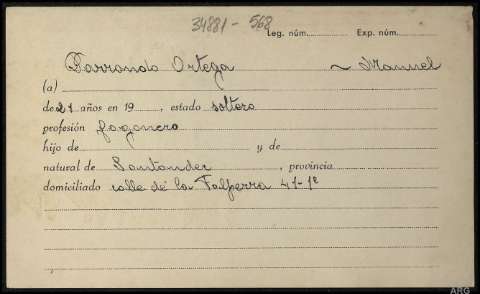 34881 - 568
Leg. núm. Exp. núm.
Farrondo Ortega ~ Manuel
(a)
de 21 años en 19 , estado soltero
profesión fogonero
hijo de y de
natural de Santander , provincia
domiciliado calle de la Talperra 41-1º
ARG